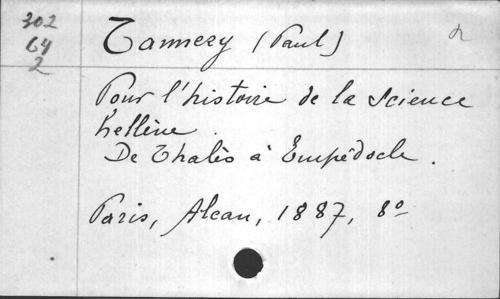 302
64
2
Tannery (Paul)
Pour l'histoire de la Science
hellène.
De Thalès à Empédocle.
Paris, Alcan, 1887, 8º